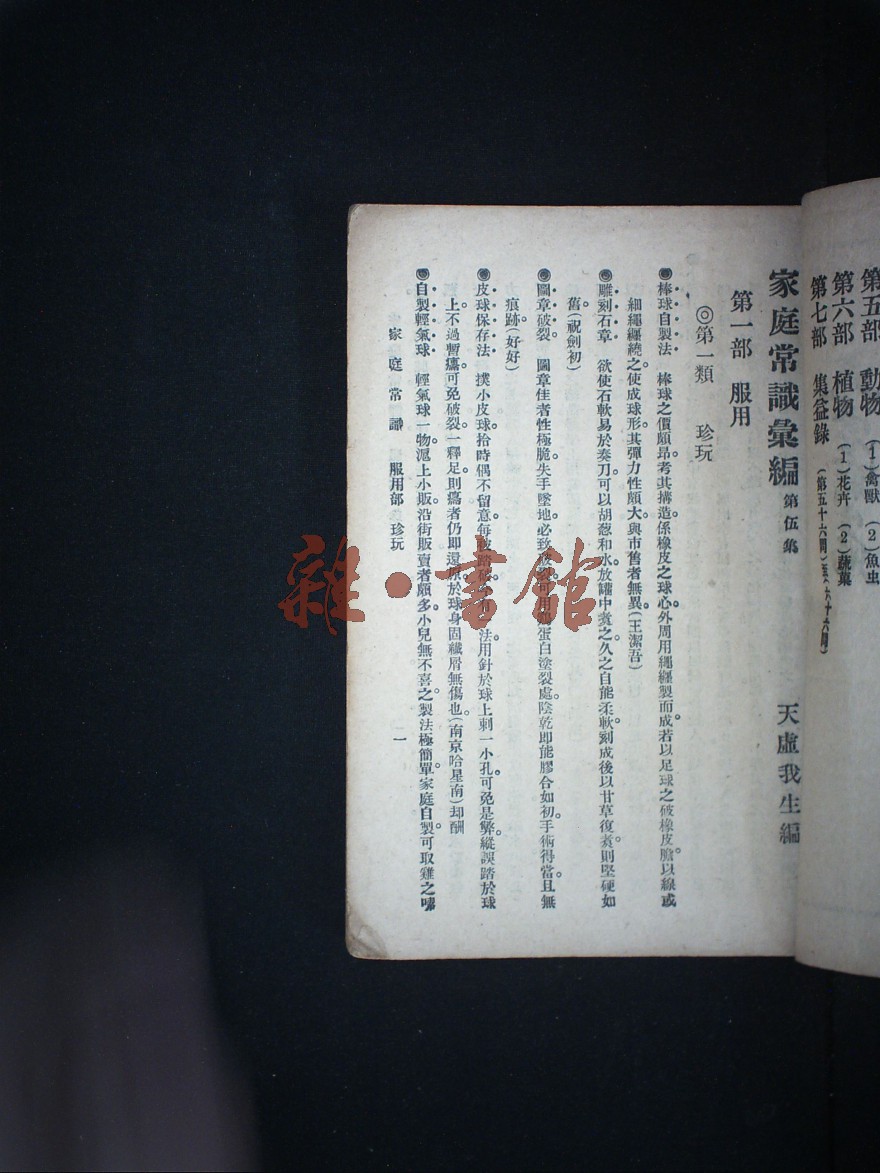 第五部 動物 (1)禽獸 (2)魚虫
第六部 植物 (1)花卉 (2)蔬菓
第七部 集益錄 (第五十六問)至(六十六問)
家庭常識彙編 第伍集 天虛我生編
第一部 服用
◎第一類 珍玩
棒球自製法 棒球之價頗昂。考其搆造。係橡皮之球心。外周用繩纒製而成。若以足球之破橡皮膽。以線或
細繩纒繞之。使成球形。其彈力性頗大。與市售者無異。(王潔吾)
雕刻石章 欲使石軟易於奏刀。可以胡葱和水。放罐中煑之。久之自能柔軟。刻成後以甘草復煑。則堅硬如
舊。(祝劍初)
圖章破裂 圖章佳者性極脆。失手墜地。必致 可用 蛋白塗裂處。陰乾即能膠合如初。手術得當。且無
痕跡。(好好)
皮球保存法 撲小皮球拾時。偶不留意。每被踏破 法。用針於球上刺一小孔。可免是弊。縱誤踏於球
上。不過暫癟。可免破裂。一釋足則癟者仍即還原。於球身固纖屑無傷也。(南京哈星南)却酬
自製輕氣球 輕氣球一物。滬上小販沿街販賣者頗多。小兒無不喜之。製法極簡單。家庭自製。可取雞之嗉
家庭常識 服用部 珍玩 一
雜·書館